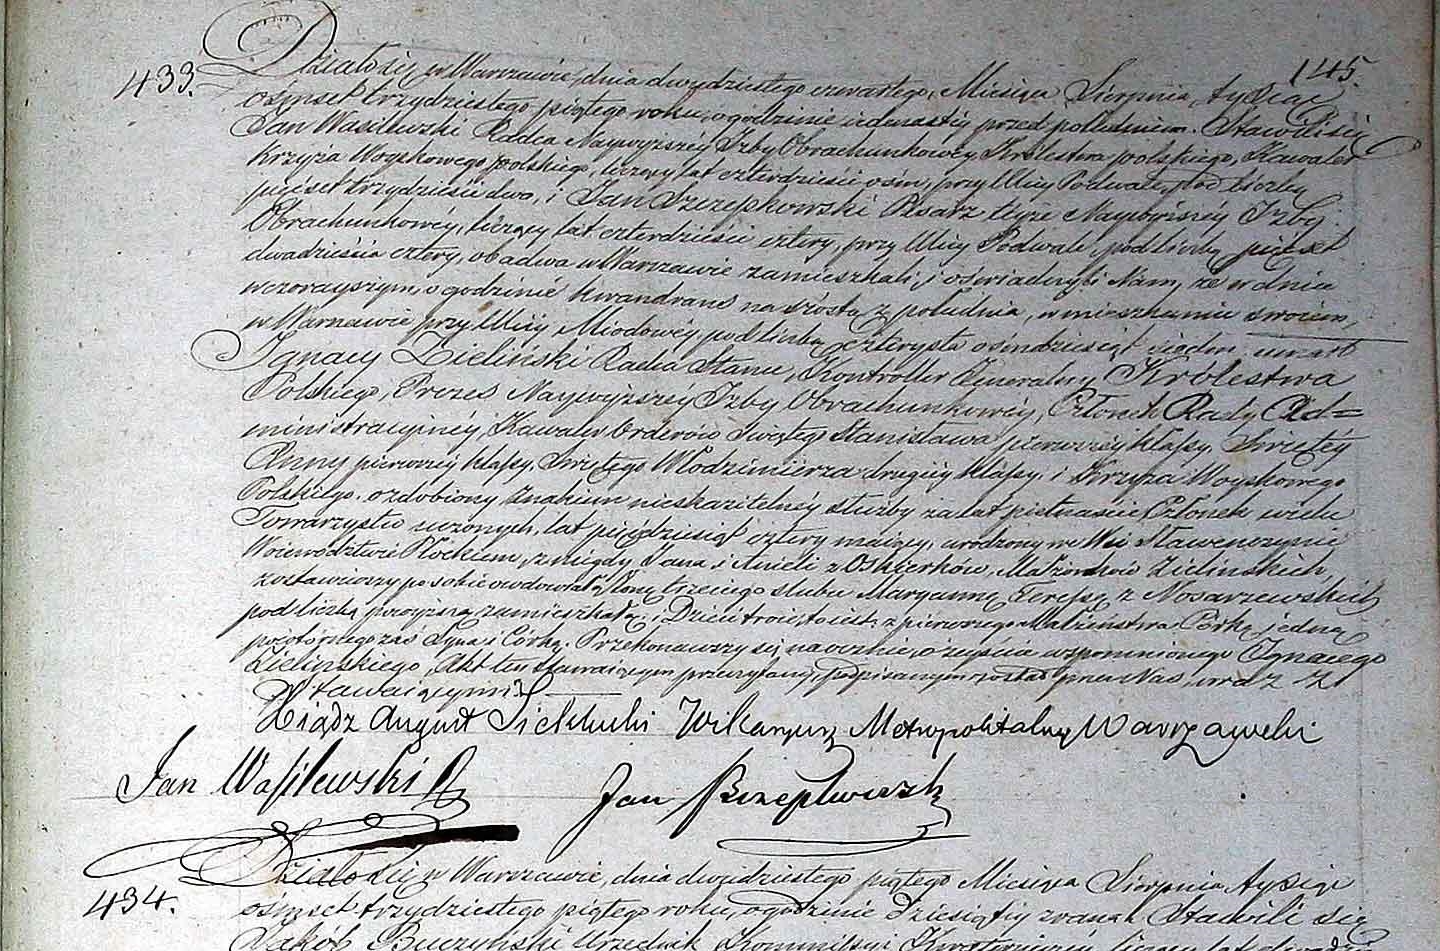 433.
145.
Działo się w Warszawie, dnia dwudziestego czwartego, Miesiąca Sierpnia, tysiąc
osmset trzydziestego piątego roku, o godzinie iedenastey przed południem. Stawili się
Jan Wasilewski Radca Naywyższéy Izby Obrachunkowéy Królestwa polskiego, Kawaler
Krzyża Woyskowego polskiego, liczący lat czterdzieści ośm, przy Ulicy Podwale, pod liczbą
pięćset trzydzieści dwa, i Jan Szczepkowski Pisarz teyże Naywyższéy Izby
Obrachunkowéy, liczący lat czterdzieści cztery, przy Ulicy Podwale, pod liczbą pięćset
dwadzieścia cztery, obadwa w Warszawie zamieszkali, i oświadczyli Nam, że w dniu
wczorayszym, o godzinie kwandrans na szóstą z południa, w mieszkaniu swoiem,
w Warszawie przy Ulicy Miodowey pod liczbą czterysta osmdziesiąt siedm, umarł
Ignacy Zieliński Radca Stanu, Kontroller Generalny Królestwa
Polskiego, Prezes Naywyższéy Izby Obrachunkowéy, Członek Rady Ad=
ministracyinéy, Kawaler Orderów Swiętego Stanisława pierwszéy klassy, Swiętéy
Anny pierwszéy klassy, Swiętego Włodzimierza drugiéy klassy, i Krzyża Woyskowego
Polskiego, ozdobiony znakiem nieskazitelnéy służby za lat piętnaście, Członek wielu
Towarzystw uczonych, lat pięćdziesiąt cztery maiący, urodzony we Wsi
Woiewództwie Płockiem, z niegdy Jana i Anieli z Małżonków Zielińskich,
zostawiwszy po sobie owdowiałą Żonę trzeciego ślubu Maryannę Teressę z Nosarzewskich
pod liczbą powyższą zamieszkałą, i Dzieci troie, to iest: z pierwszego Małżeństwa Córkę iedną
powtórnego zaś Syna i Córkę. Przekonawszy się naocznie o zeyściu wspomnionego Ignacego
Zielińskiego, Akt ten stawaiącym przeczytany, podpisanym został przez Nas, wraz z
Stawaiącymi.
Xiądz August Sieklucki Wikaryusz Metropolitalny Warszawski
Jan Wasilewski
Jan Szczepkowski
434.
Działo się w Warszawie, dnia dwudziestego piątego Miesiąca Sierpnia tysiąc
osmset trzydziestego piątego roku, o godzinie dziesiątey zrana. Stawili się
Jakób Buczyński Urzędnik Kommissyi